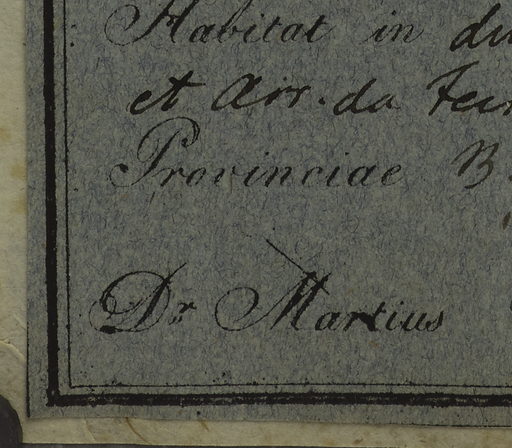 Habitat in
et Arr. da
Provinciae B
Dr. Martius